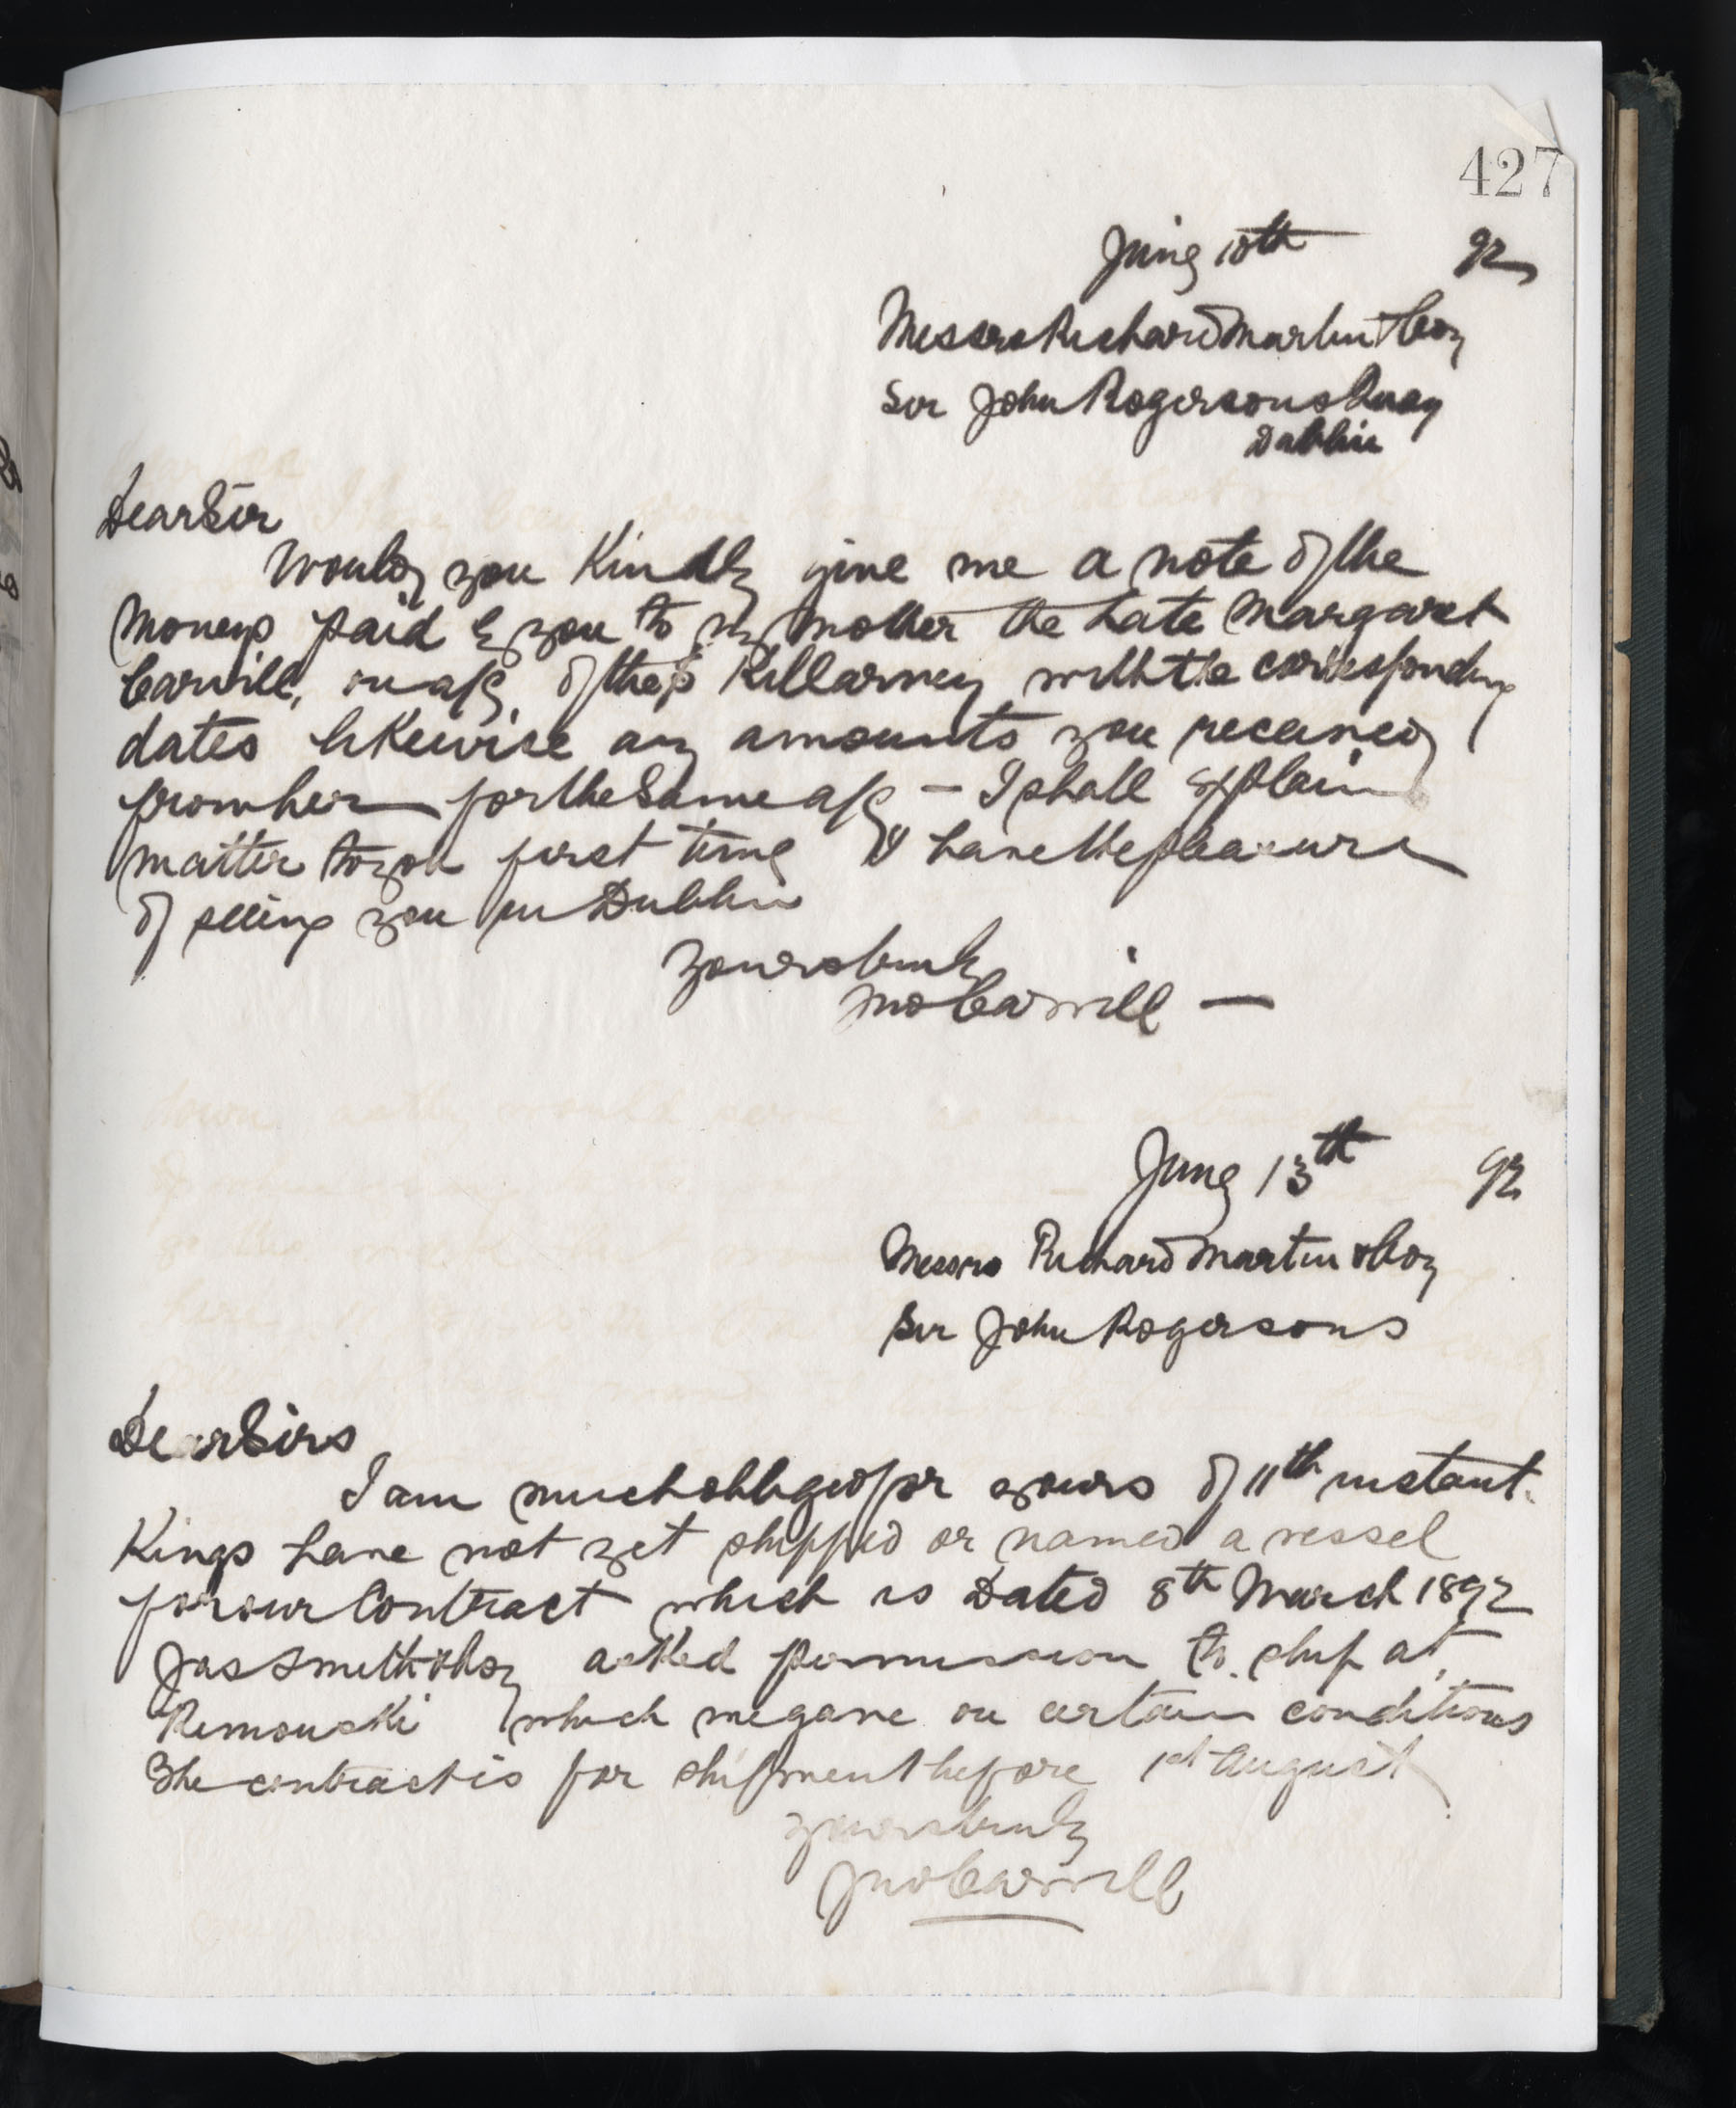 427
June 10th 92
Messrs Richard Martin & Coy
Sir John Rogersons Quay
Dublin
Dear Sir
Would you Kindly give me a note of the
Moneys paid by you to my Mother the Late Margaret
Carvill, on a/c of the S Killarney with the corresponding
dates likewise any amounts you received
from her for the Same a/c - I shall explain
matter to you first time I have the pleasure
of seeing you in Dublin
Yours truly
Jno Carvill -
June 13th 92
Messrs Richard Martin & Coy
Sir John Rogersons
Dear Sirs
I am much obliged for yours of 11th instant.
Kings have not yet shipped or named a vessel
for our Contract which is Dated 8th March 1892
Jas Smith & Coy asked permission to ship at
Rimouski which we gave on certain conditions
The contract is for shipment before 1st August
Yours truly
Jno Carvill